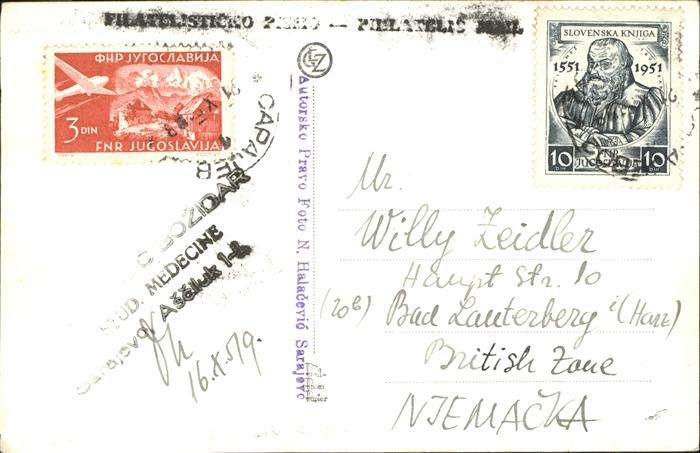 FILATELISTIČKO PISMO — PHILATELIC MAIL
ФНР ЈУГОСЛАВИЈА
3 DIN
FNR JUGOSLAVIJA
САРАЈЕВ
SLOVENSKA KNJIGA
1551 1951
FNR
10 JUGOSLAVIJA 10
DIN DIN
BOŽIDAR
STUD. MEDECINE
Sarajevo, Aščiluk 1-a
16.X.519.
Autorsko Pravo Foto N. Halačević Sarajevo
Mr.
Willy Zeidler
Haupt Str. 10
(20b) Bad Lauterberg i (Harz)
British Zone
NJEMAČKA